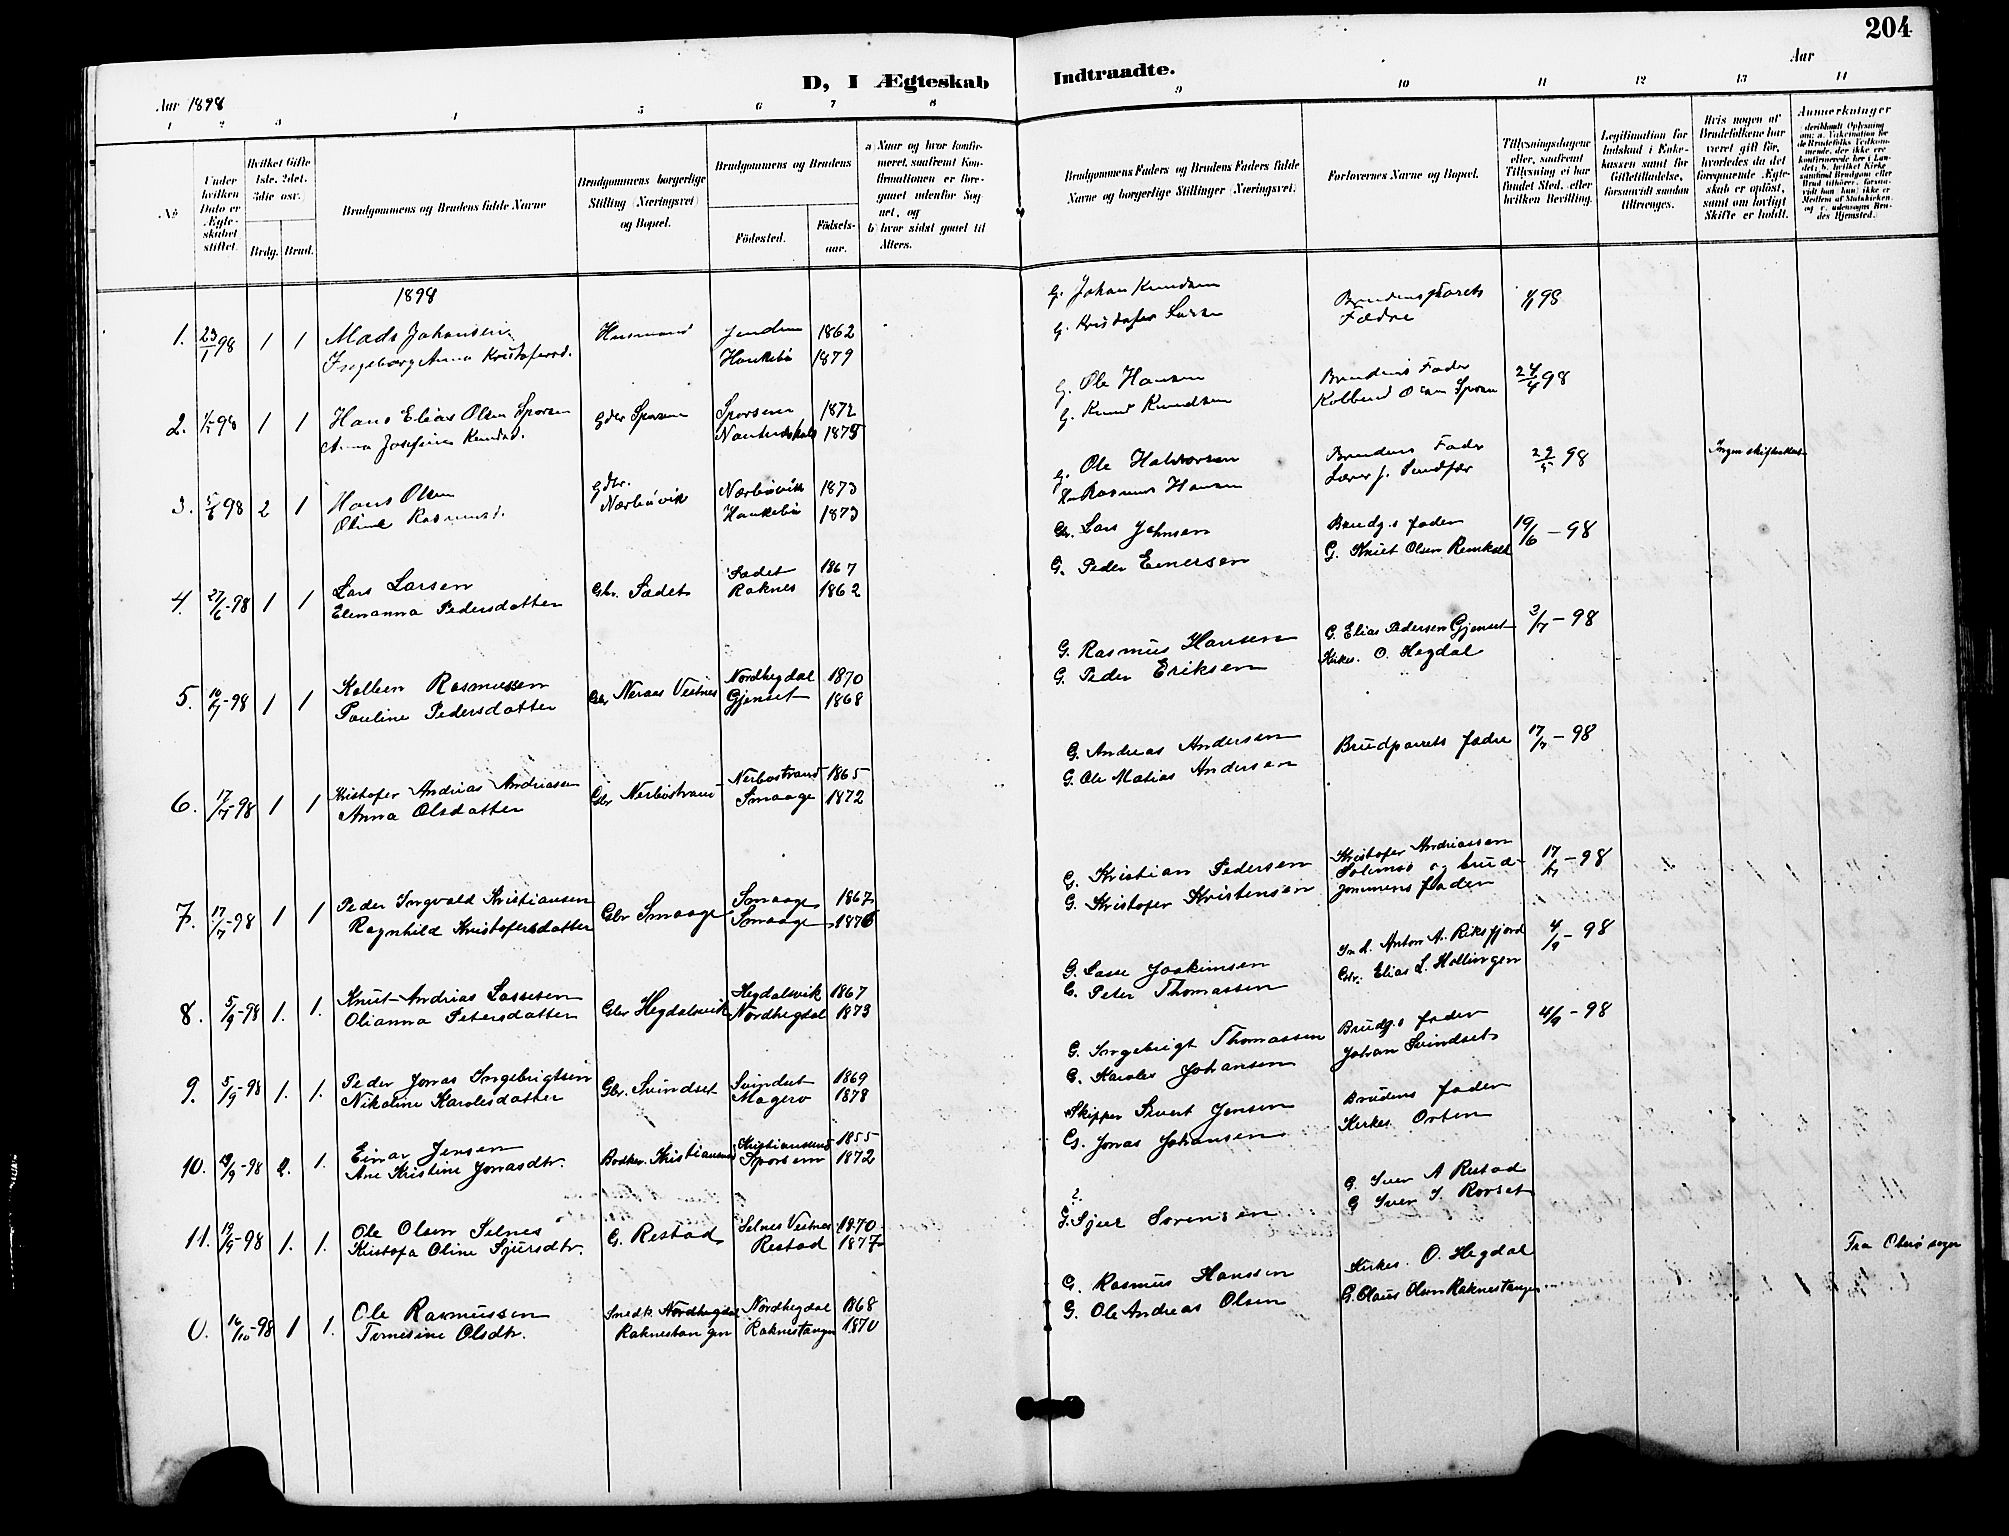 204
D, I Ægteskab Indtraadte.
Aar 1898
Aar
1 2 3 4 5 6 7 8 9 10 11 12 13 14
No
Under hvilken Dato er Ægteskabet stiftet.
Hvilket Gifte 1ste, 2det, 3die osv.
Brdg. Brud.
Brudgommens og Brudens fulde Navne
Brudgommens borgerlige Stilling (Næringsvei) og Bopæl.
Brudgommens og Brudens
Fødested.
Fødselsaar.
a Naar og hvor konfirmeret, saafremt Konfirmationen er foregaaet udenfor Sognet, og
b hvor sidst gaaet til Alters.
Brudgommens Faders og Brudens Faders fulde Navne og borgerlige Stillinger (Næringsvei)
Forlovernes Navne og Bopæl.
Tillysningsdagene eller, saafremt Tillysning ei har fundet Sted, efter hvilken Bevilling.
Legitimation for Indskud i Enkekassen samt for Giftetilladelse, forsaavidt saadan tiltrænges.
Hvis nogen af Brudefolkene har været gift før, hvorledes da det foregaaende Ægteskab er opløst, samt om lovligt Skifte er holdt.
Anmerkninger
1898
1. 23/1 98 1 1 Mads Johansen Husmand 1862 G. Johan Knudsen Brudeparrets
Ingeborg Anna Kristofersd. Haukebø 1879 G. Kristofer Fædre
2. 98 1 1 Hans Elias Olsen Sporsem Gbr Sporsem Sporsem 1872 G. Ole Hansen Brudens Fader 24/4 98
Anna Josefine Knudsd. 1875 G. Knud Knudsen
3. 5/6 98 2 1 Hans Olsen Gbr. Nærbøvik Nærbøvik 1873 G. Ole Halvorsen Brudens Fader 29/5 98
Oline Rasmusd. Haukebø 1873 Rasmus Hansen
4. 27/6-98 1 1 Lars Larsen Gbr. Sædet Sædet 1867 Gbr. Lars Johnsen Brudg.s fader 19/6-98
Elenanna Pedersdatter Raknes 1862 G. Peder Einersen G. Knut Olsen
5. 16/7-98 1 1 Kolbein Rasmussen Gbr Neraas Vestnes Nordhegdal 1870 G. Rasmus Hansen G. Elias Pedersen Gjenset 3/7-98
Pauline Pedersdatter Gjenset 1868 G. Peder Eriksen Kirkes. O. Hegdal
6. 17/7-98 1 1 Kristofer Andrias Andreassen Gbr Nerbøstrand Nerbøstrand 1865 G. Andreas Andersen Brudparrets fædre 17/7-98
Anna Olsdatter Smaage 1872 G. Ole Matias Andersen
7. 17/7-98 1 1 Peder Ingvald Kristiansen Gbr Smaage Smaage 1867 G. Kristian Pedersen Kristofer Andreassen 17/7-98
Ragnhild Kristofersdatter Smaage 1876 G. Kristofer Kristensen og brudgommens fader
8. 5/9-98 1. 1. Knut Andrias Lassesen Gbr Hegdalsvik Hegdalsvik 1867 G. Lasse Joakimsen Ind. Anton A. Riksfjord 4/9-98
Olianna Petersdatter Nordhegdal 1873 G. Peter Thomassen Gbr. Elias L. Hollingen
9. 5/9-98 1. 1. Peder Jonas Ingebrigtsen Gbr. Svindset Svindset 1869 G. Ingebrigt Thomassen Brudg.s fader 4/9-98
Nikoline Karolesdatter Magerø 1878 G. Karoles Johansen Johan Svindset
10. /9-98 2. 1. Einar Jensen Bødker. Kristiansund Kristiansund 1855 Skipper Sivert Jensen Brudens fader
Ane Kristine Jonasdtr. Sporsem 1872 G. Jonas Johansen Kirkes Orten
11. 19/9-98 1. 1. Ole Olsen Selnes G. Restad Selnes Vestnes 1870 ? G. Iver A Restad
Kristofa Oline Sjursdtr. Restad 1877 G. Sjur Sørensen G Iver I. Rovset
16/10-98 1 1. Ole Rasmussen Snedk Nordhegdal Nordhegdal 1868 G. Rasmus Hanssen Kirkes. O. Hegdal
Olsdtr. Raknestangen Raknestangen 1870 G. Ole Andreas Olsen G. Olaus Olsen Raknestangen